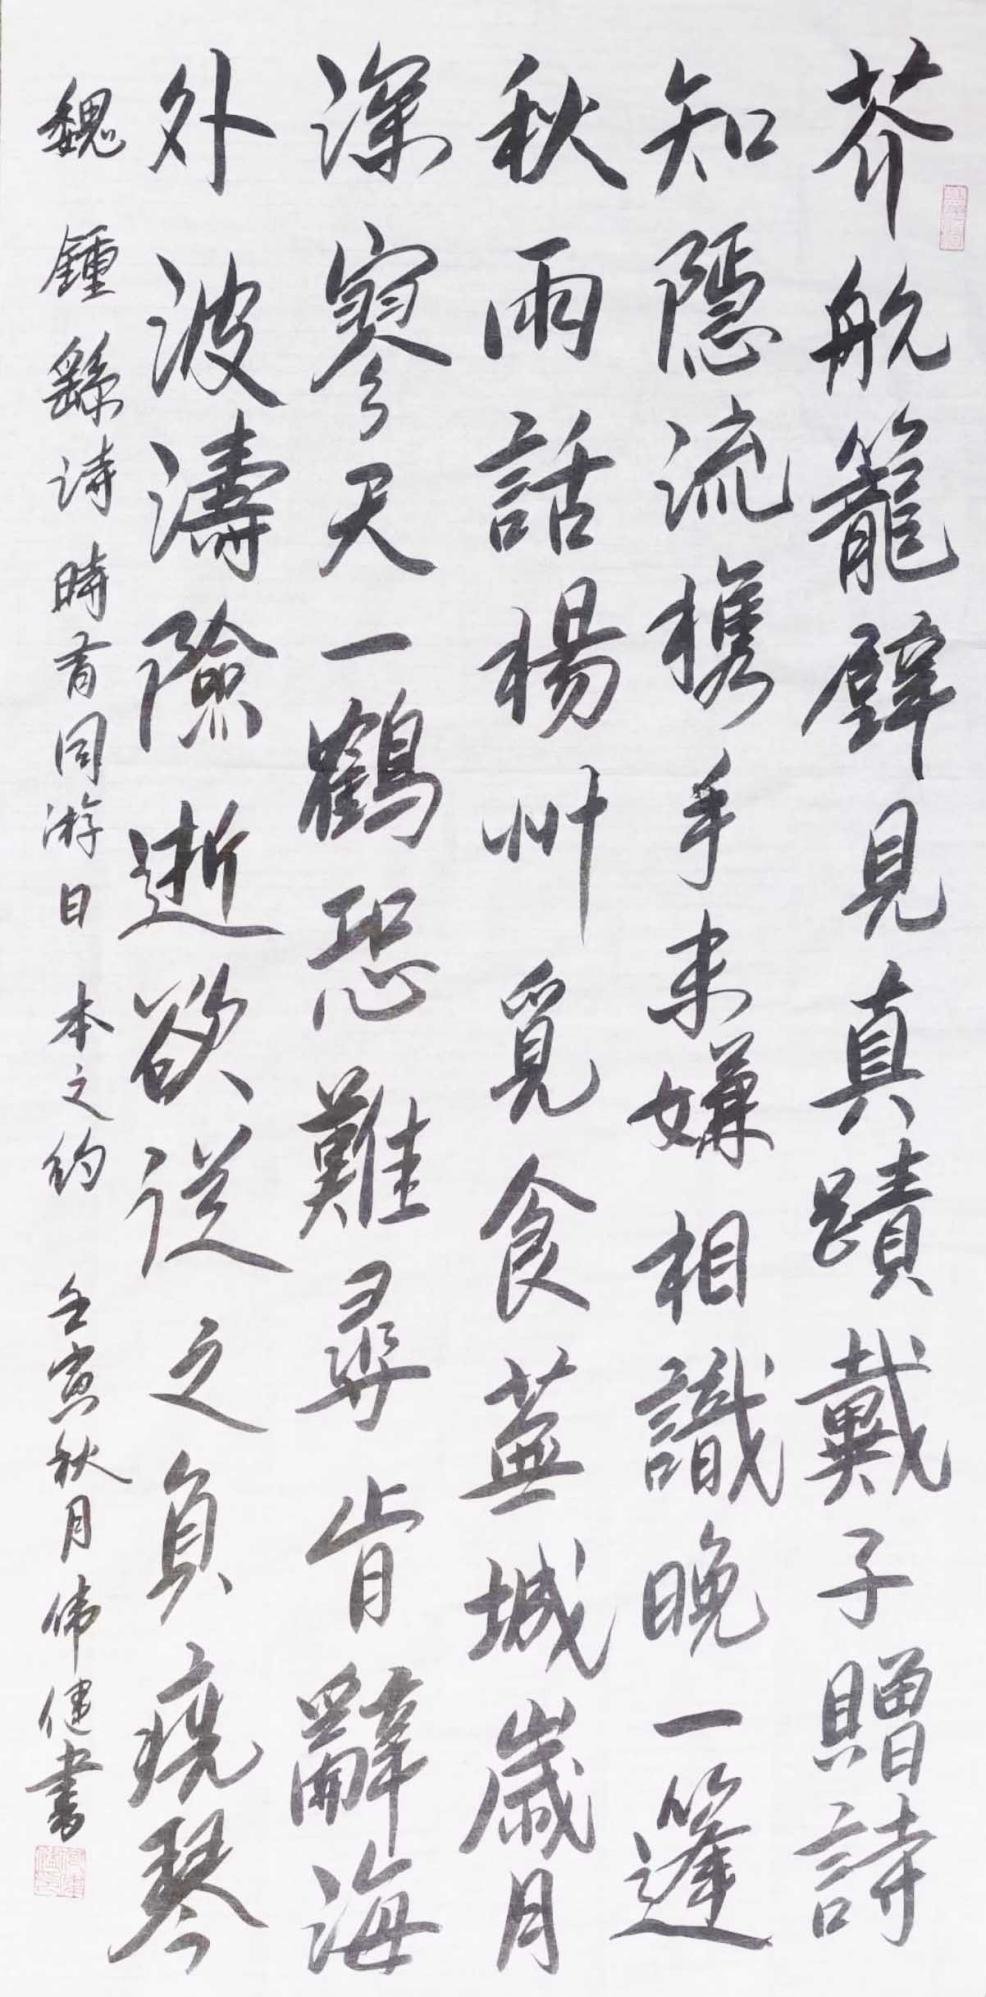 芥航籠壁見真蹟戴子贈詩
知隱流携手未嫌相識晚一篷
秋雨話楊州覓食蕪城歲月
深寥天一鶴恐難尋肯辭海
外波濤險逝欲從之負瘢琴
魏鍾繇诗時有同游日本之約壬寅秋月偉健書